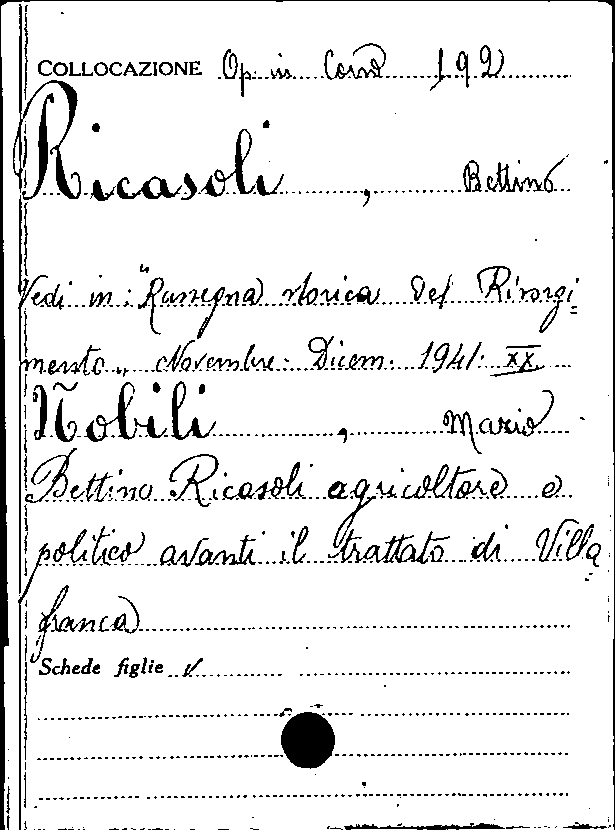 COLLOCAZIONE Op. in Corso 192
Ricasoli, Bettino
Vedi in: "Rassegna storica del Risorgi=
mento„ Novembre - Dicem. 1941. XX
Nobili, Mario
Bettino Ricasoli agricoltore e
politico avanti il trattato di Villa=
franca
Schede figlie ✓